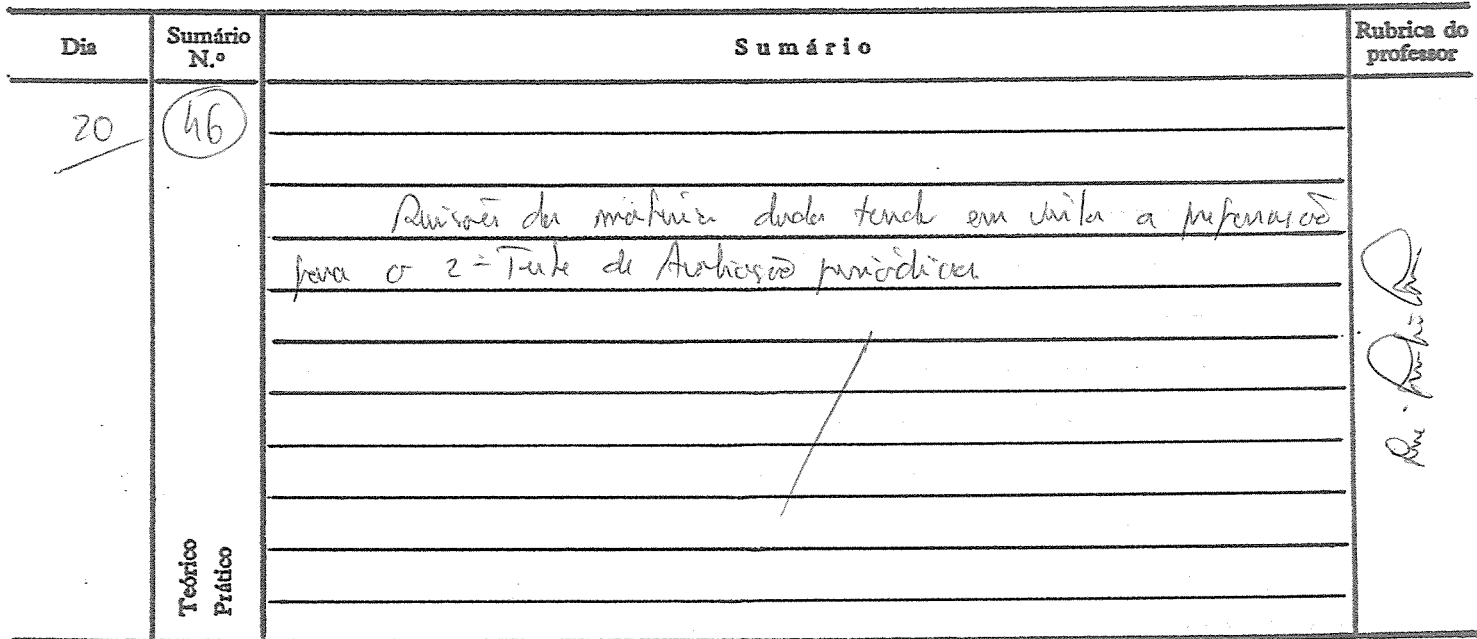 Dia
Sumário N.º
Sumário
Rubrica do professor
20
46
Revisões da matéria dada tendo em vista a preparação
para o 2º Teste de Avaliação periódica
Teórico
Prático
Rui